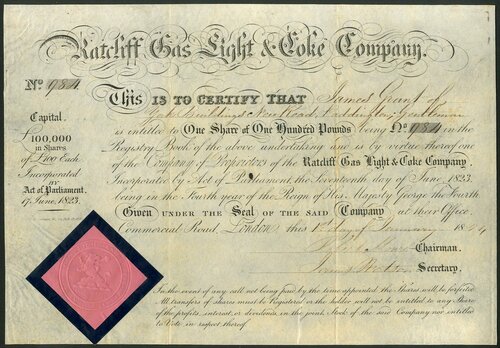 Ratcliff Gas Light & Coke Company.
No. 984
This is to Certify that James Grant of
York Buildings New Road, Paddington, Gentleman
Capital.
£100,000
in Shares
of £100 Each
Incorporated
by
Act of Parliament.
17 June, 1823.
is entitled to One Share of One Hundred Pounds being No. 984 in the
Registry Book of the above undertaking and is by virtue thereof one
of the Company of Proprietors of the Ratcliff Gas Light & Coke Company.
Incorporated by Act of Parliament, the Seventeenth day of June, 1823.
being in the Fourth year of the Reign of His Majesty George the Fourth
Given under the Seal of the said Company at their Office
Commercial Road, London, this day of January 18
Chairman.
Secretary.
In the event of any call not being paid by the time appointed the Shares will be forfeited
All transfers of shares must be Registered or the holder will not be entitled to any Share
of the profits, interest or dividends in the joint Stock of the said Company nor entitled
to Vote in respect thereof.